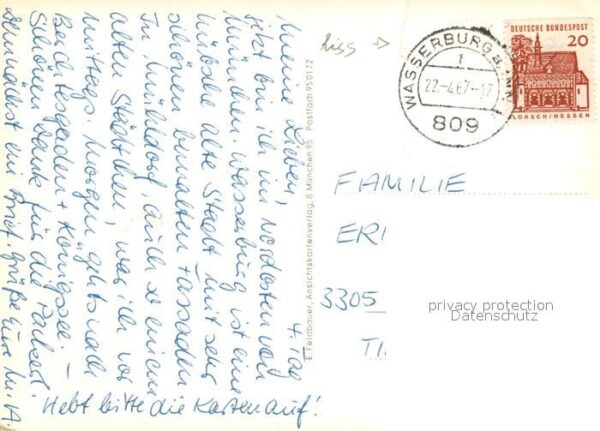 4. Tag
Meine Lieben,
jetzt bin ich im Nordosten von
München. Wasserburg ist eine
hübsche alte Stadt mit sehr
schönen bemalten Fassaden
In Mühldorf, auch so einem
alten Städtchen, war ich vor
mittags. Morgen gehts nach
Berchtesgaden + Königssee. –
Schönen Dank für die
Demnächst ein Brief. Grüße Eure M. A.
Hebt bitte die Karten auf!
E. Feldbauer, Ansichtskartenverlag, 8 München 95 Postfach 950172
Riss →
WASSERBURG a. INN
1
22.-4.67.-17
809
DEUTSCHE BUNDESPOST
20
LORSCH/HESSEN
FAMILIE
ER
3305
TI
privacy protection
Datenschutz